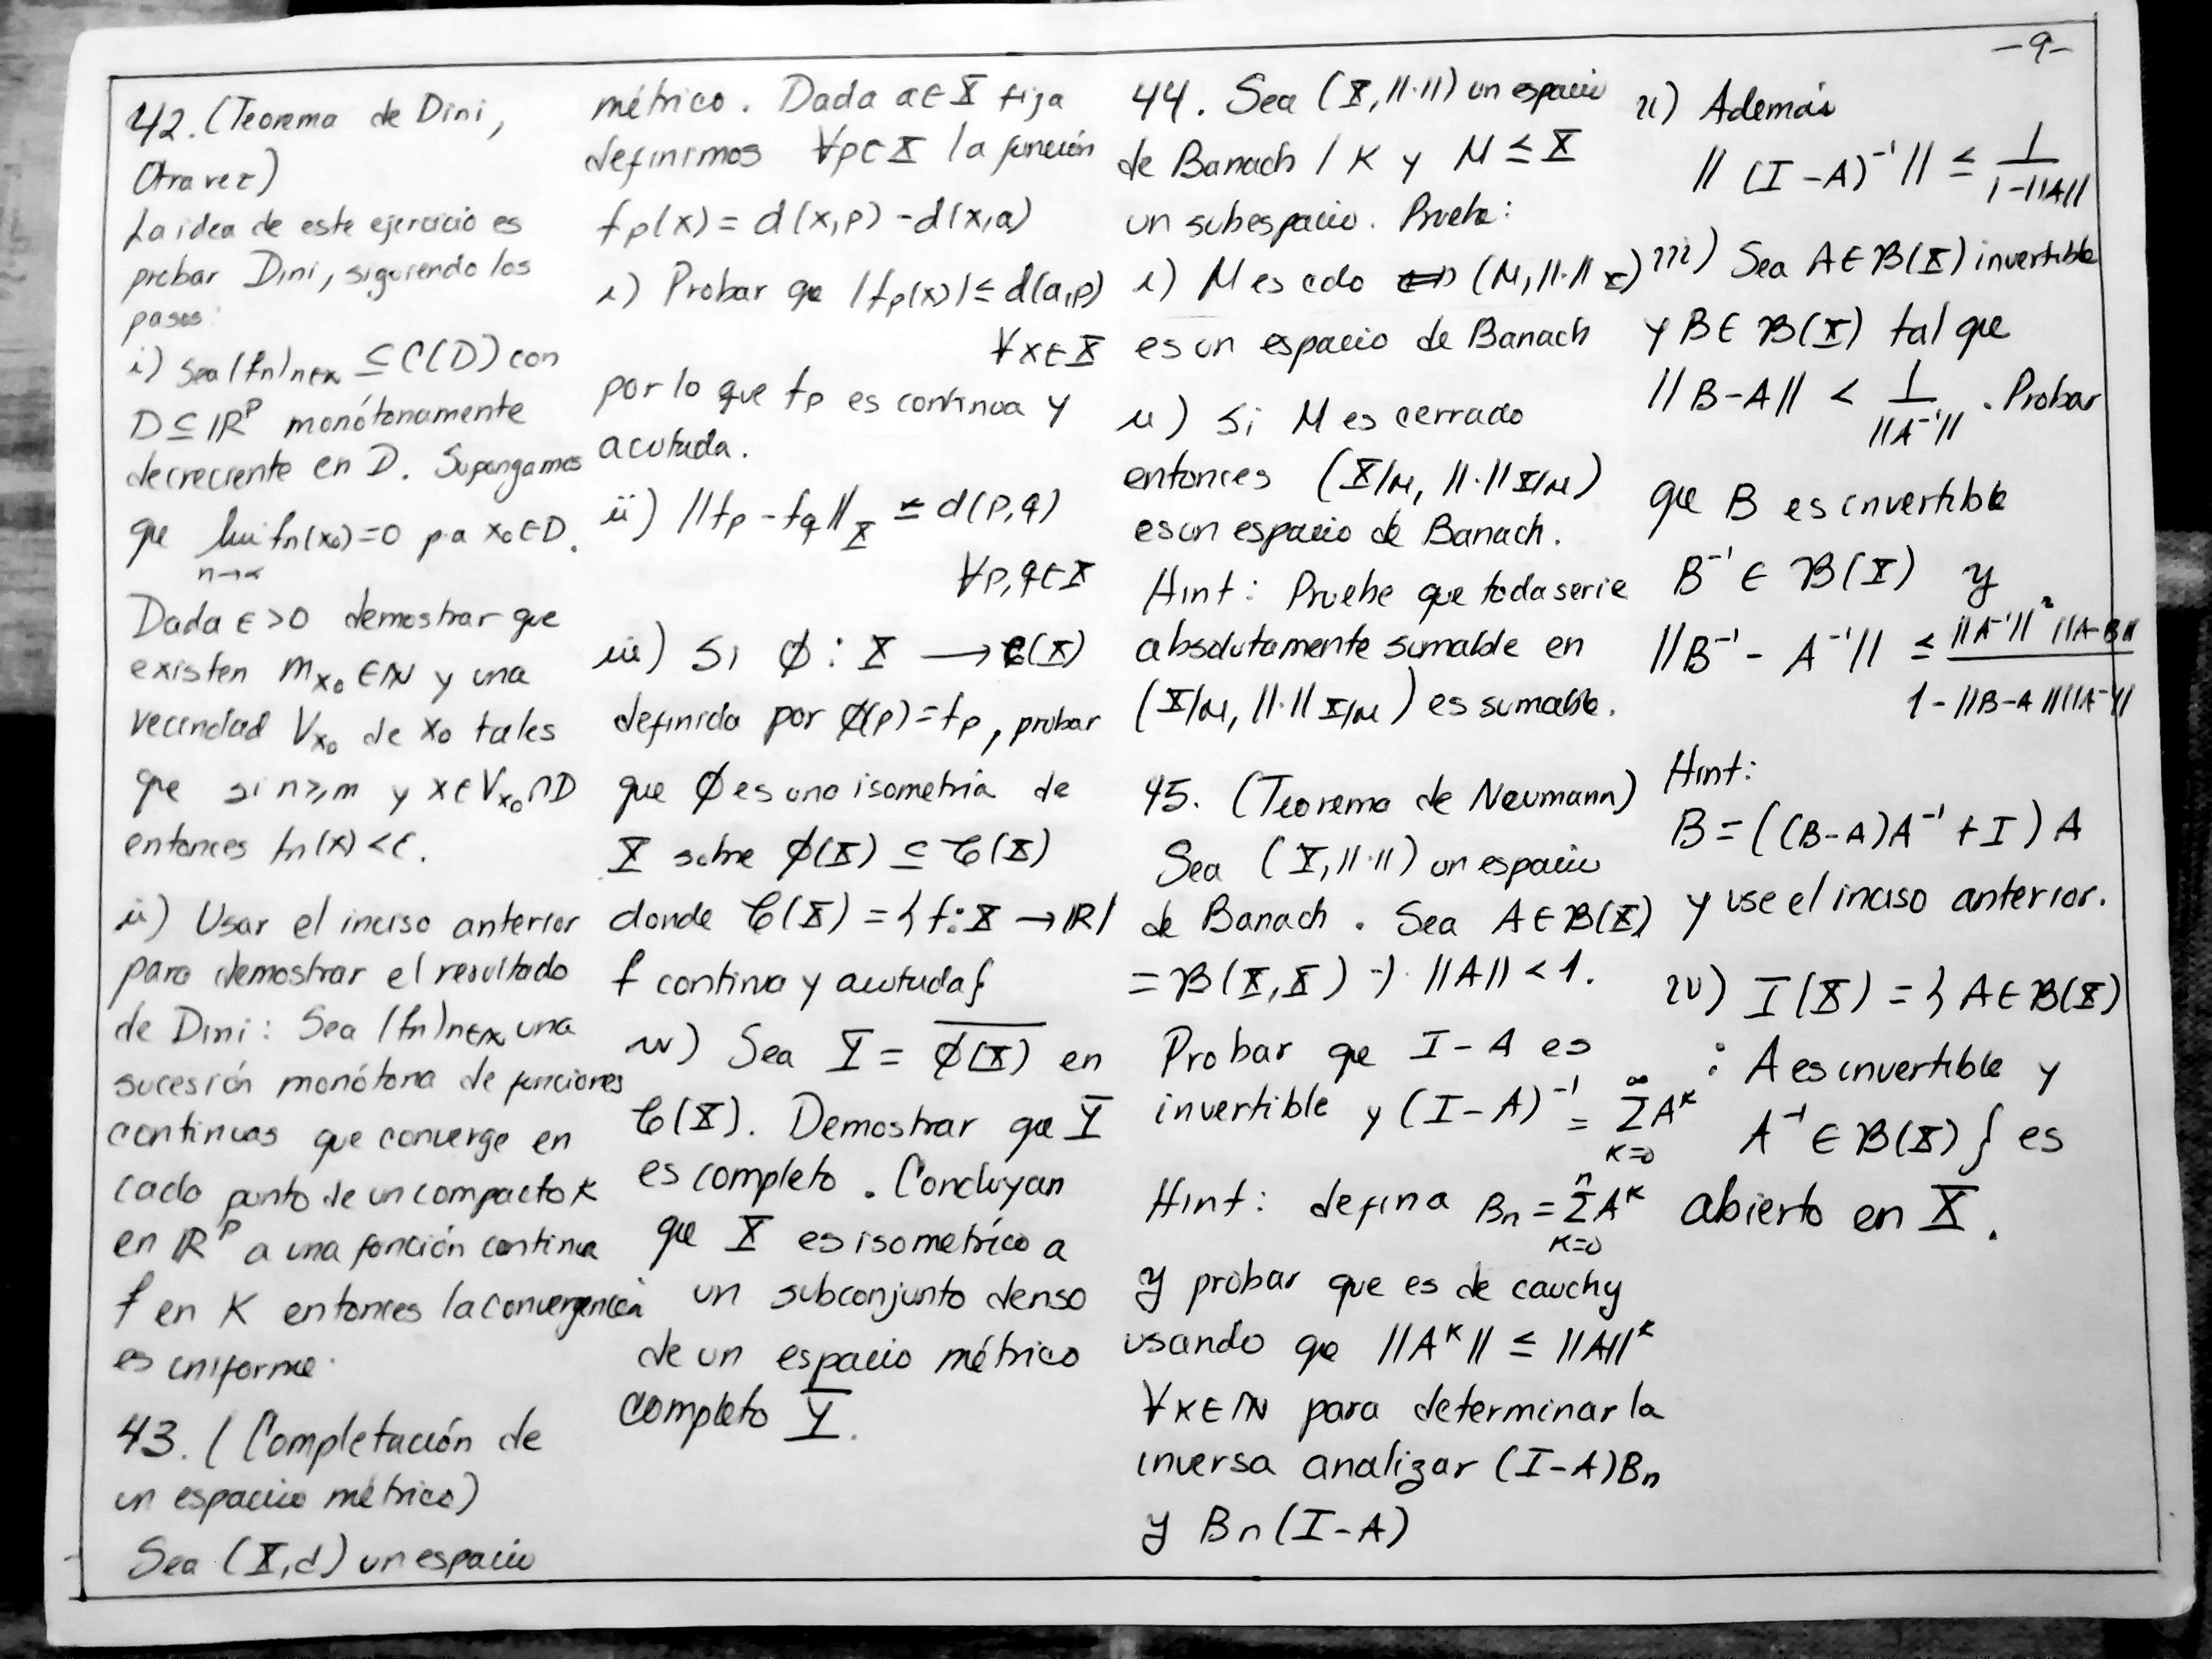 -9-
42. (Teorema de Dini,
Otra vez)
La idea de este ejercicio es
probar Dini, siguiendo los
pasos:
i) Sea (fn)n∈ℕ ⊆ C(D) con
D ⊆ ℝᵖ monótonamente
decreciente en D. Supongamos
que lim fn(x₀)=0 p.a x₀∈D.
n→∞
Dada ε>0 demostrar que
existen m_x₀ ∈ℕ y una
vecindad V_x₀ de x₀ tales
que si n≥m y x∈V_x₀∩D
entonces fn(x)<ε.
ii) Usar el inciso anterior
para demostrar el resultado
de Dini: Sea (fn)n∈ℕ una
sucesión monótona de funciones
continuas que converge en
cada punto de un compacto K
en ℝᵖ a una función continua
f en K entonces la convergencia
es uniforme.
43. (Completación de
un espacio métrico)
Sea (X,d) un espacio
métrico. Dada a∈X fija
definimos ∀p∈X la función
fp(x) = d(x,p) - d(x,a)
i) Probar que |fp(x)| ≤ d(a,p)
∀x∈X
por lo que fp es continua y
acotada.
ii) ||fp - fq||_X ≤ d(p,q)
∀p,q∈X
iii) Si ϕ : X → C(X)
definida por ϕ(p)=fp, probar
que ϕ es una isometría de
X sobre ϕ(X) ⊆ C(X)
donde C(X) = {f: X → ℝ |
f continua y acotada}
iv) Sea Y = \overline{ϕ(X)} en
C(X). Demostrar que Y
es completo. Concluyan
que X es isométrico a
un subconjunto denso
de un espacio métrico
completo Y.
44. Sea (X, ||·||) un espacio
de Banach / K y M ≤ X
un subespacio. Pruebe:
i) M es cdo ⟺ (M, ||·||_X)
es un espacio de Banach
ii) Si M es cerrado
entonces (X/M, ||·||_X/M)
es un espacio de Banach.
Hint: Pruebe que toda serie
absolutamente sumable en
(X/M, ||·||_X/M) es sumable.
45. (Teorema de Neumann)
Sea (X, ||·||) un espacio
de Banach. Sea A∈B(X)
= B(X,X) ·)· ||A|| < 1.
Probar que I-A es
invertible y (I-A)⁻¹ = ∑_{K=0}^{∞} Aᴷ
Hint: defina Bn = ∑_{K=0}^{n} Aᴷ
y probar que es de cauchy
usando que ||Aᴷ|| ≤ ||A||ᴷ
∀K∈ℕ para determinar la
inversa analizar (I-A)Bn
y Bn(I-A)
ii) Además
||(I-A)⁻¹|| ≤ 1/(1-||A||)
iii) Sea A∈B(X) invertible
y B∈B(X) tal que
||B-A|| < 1/||A⁻¹|| . Probar
que B es invertible
B⁻¹ ∈ B(X) y
||B⁻¹ - A⁻¹|| ≤ ||A⁻¹||² ||A-B|| / (1-||B-A|| ||A⁻¹||)
Hint:
B = ((B-A)A⁻¹ + I) A
y use el inciso anterior.
iv) I(X) = {A∈B(X)
: A es invertible y
A⁻¹ ∈ B(X)} es
abierto en X.